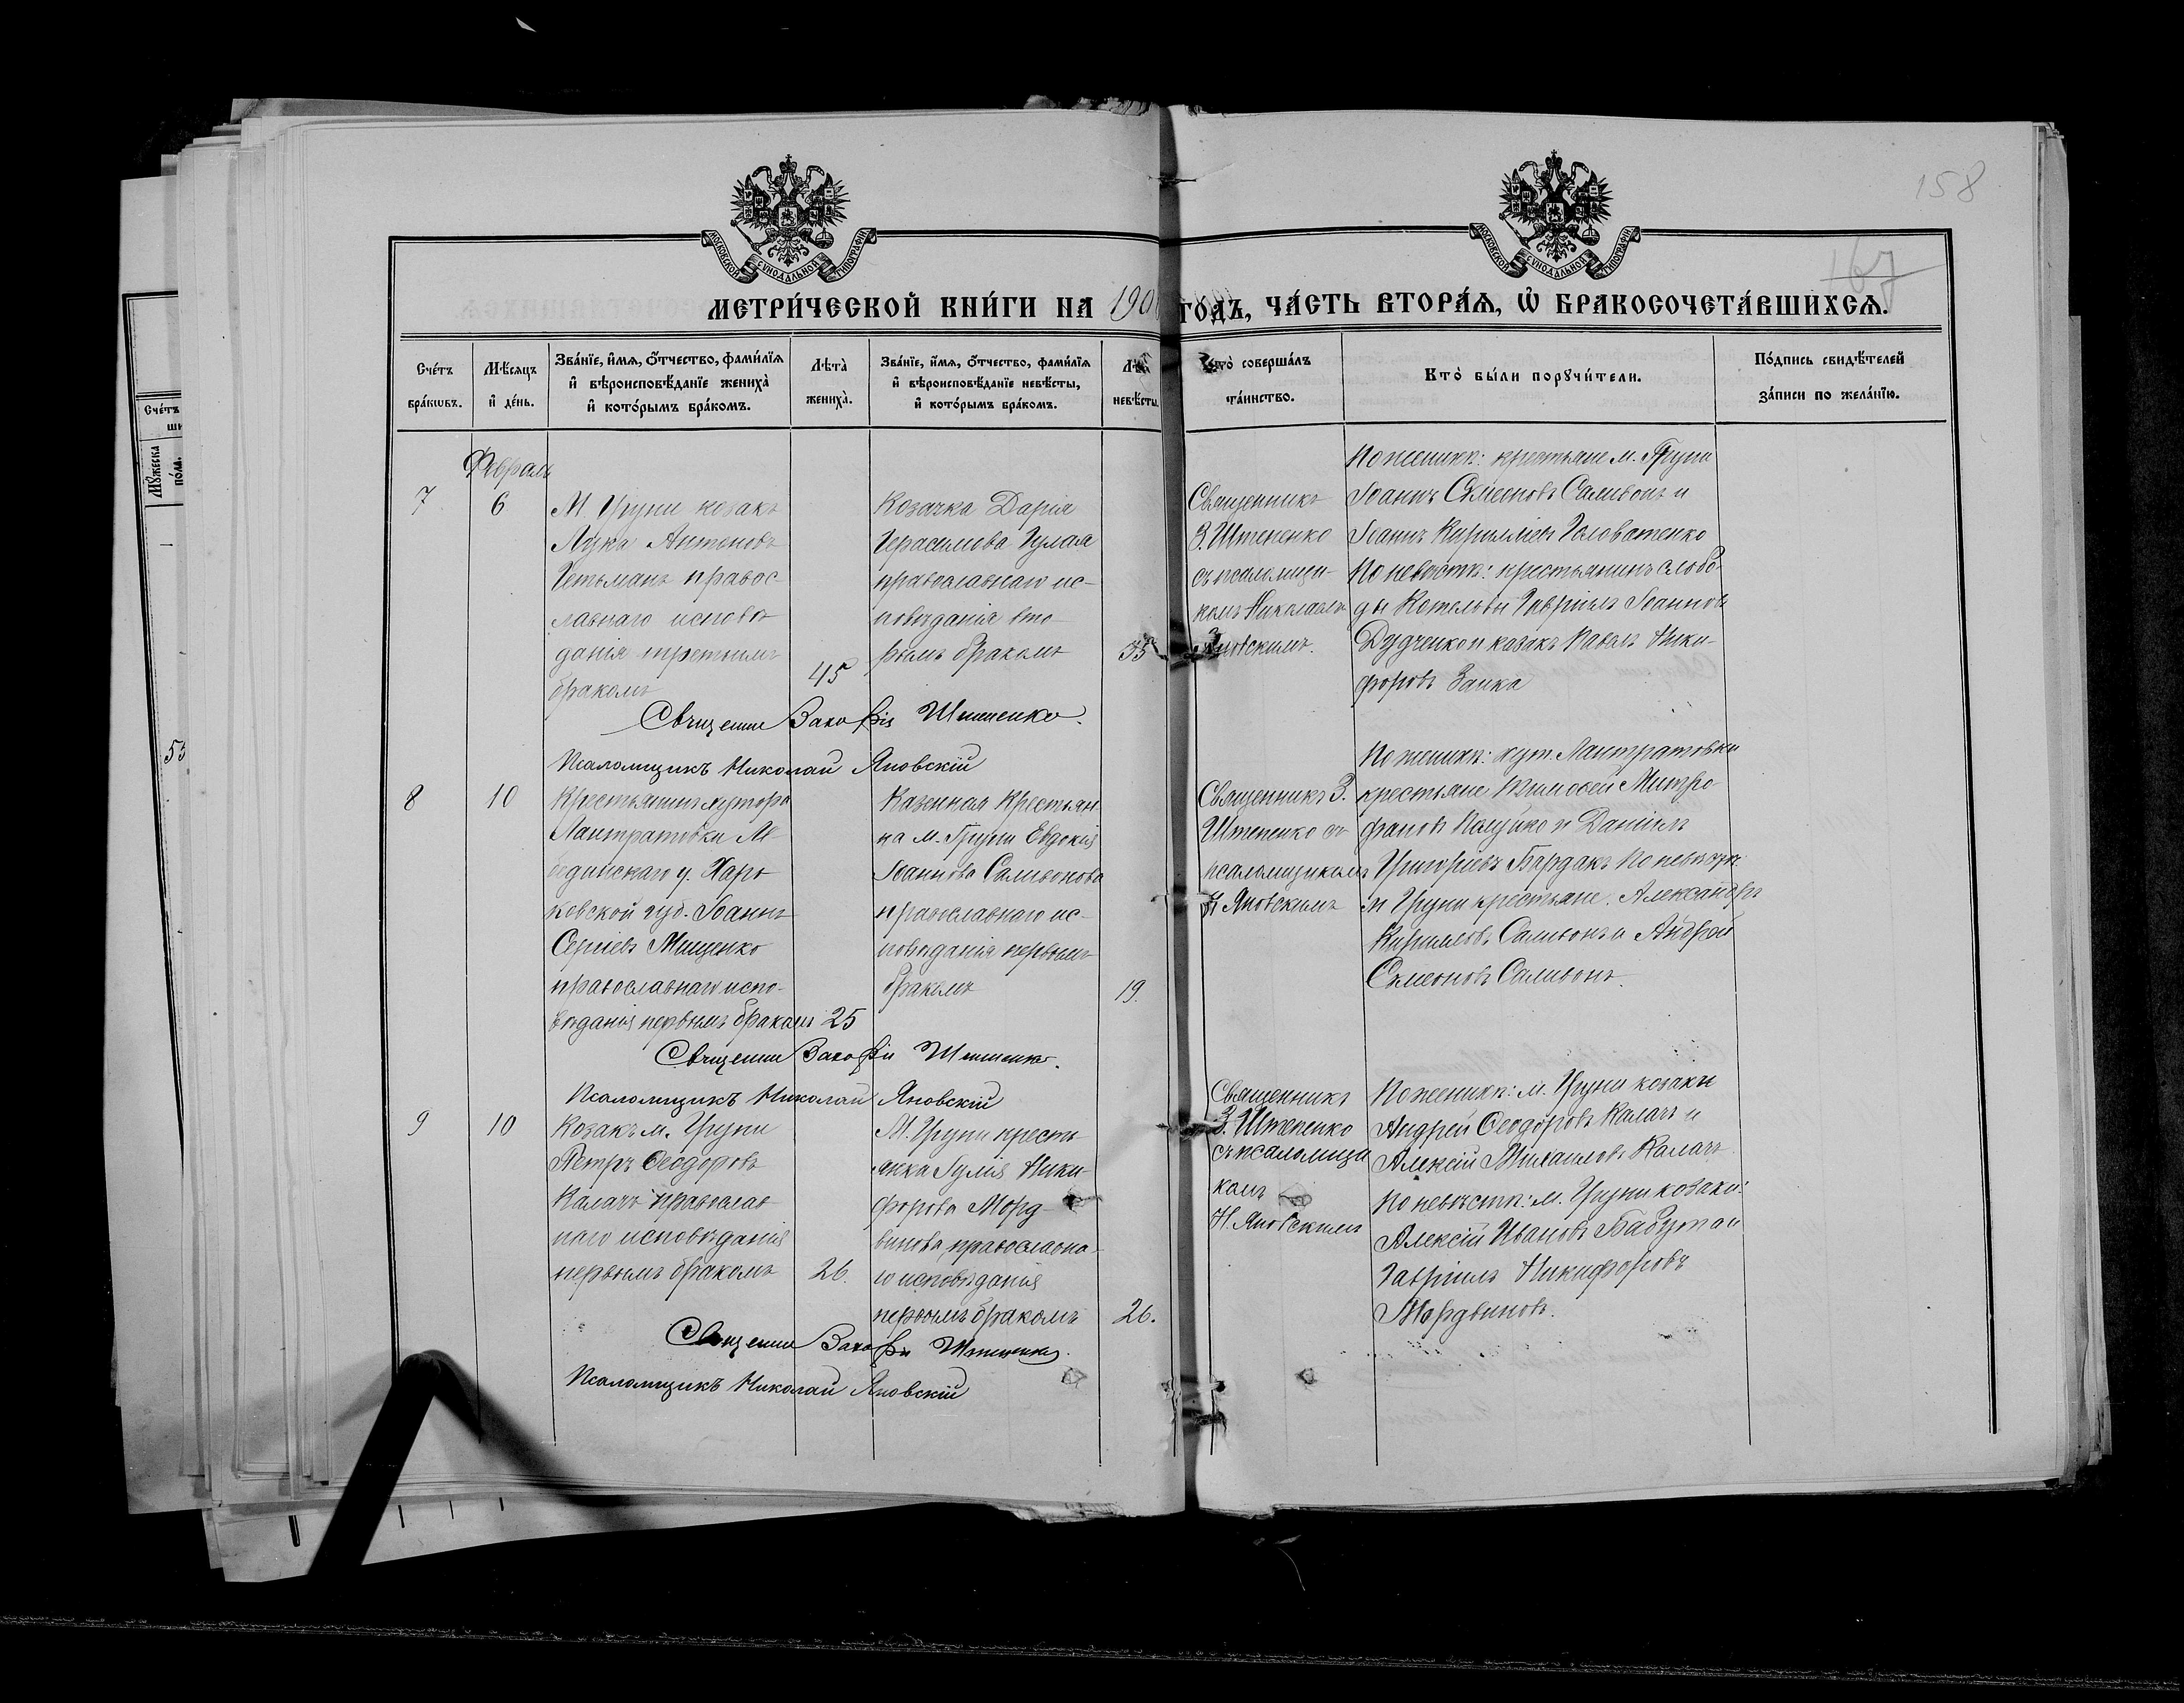 158
167
МОСКОВСКОЙ СУНОДАЛЬНОЙ ТИПОГРАФІИ
МОСКОВСКОЙ СУНОДАЛЬНОЙ ТИПОГРАФІИ
МЕТРИ́ЧЕСКОЙ КНИ́ГИ НА 190 ГО́ДЪ, ЧА́СТЬ ВТОРА́Я, Ѡ҆ БРАКОСОЧЕТА́ВШИХСѦ.
Сче́тъ бра́кѡвъ.
Мѣ́сяцъ и҆ де́нь.
Зва́нїе, и҆́мѧ, ѻ҆́тчество, фами́лїѧ
и҆ вѣроисповѣ́данїе жениха̀
и҆ кото́рымъ бра́комъ.
Лѣта̀ жениха̀.
Зва́нїе, и҆́мѧ, ѻ҆́тчество, фами́лїѧ
и҆ вѣроисповѣ́данїе невѣ́сты,
и҆ кото́рымъ бра́комъ.
Лѣта̀ невѣ́сты.
Кто̀ соверша́лъ та́инство.
Кто̀ бы́ли порꙋчи́тели.
По́дпись свидѣ́телей
за́писи по жела́нїю.
Сче́тъ
Мꙋ́жеска по́ла.
53
Февраль
7
6
М. Груни козакъ
Лука Антоновъ
Гетьманъ правос-
лавнаго исповѣ
данія третьимъ
бракомъ
45
Козачка Дарія
Герасимова Гулая
православнаго ис-
повѣданія вто
рымъ бракомъ
35
Священникъ
З. Штепенко
съ псаломщи-
комъ Николаемъ
Яновскимъ.
По женихѣ: крестьяне м. Груни
Іоаннъ Симеоновъ Саливонъ и
Іоаннъ Кирилліевъ Головатенко
По невѣстѣ: крестьянинъ слобо
ды Котельвы Гавріилъ Іоанновъ
Дудченко и казакъ Павелъ Ники-
форовъ Заика
Священни Захарія Штепенко.
Псаломщикъ Николай Яновскій
8
10
Крестьянинъ хутора
Лантратовки Ле
бединскаго у. Харь
ковской губ. Іоаннъ
Сергіевъ Мищенко
православнаго испо-
вѣданія первымъ бракомъ
25
Казенная крестьян
ка м. Груни Евдокія
Іоаннова Саливонова
православнаго ис-
повѣданія первымъ
бракомъ
19.
Священникъ З.
Штепенко съ
псаломщикомъ
Н. Яновскимъ
По женихѣ: хут. Лантратовки
крестьяне Тимофей Митро
фановъ и Даніилъ
Григоріевъ Бардакъ По невѣстѣ
м Груни крестьяне. Александръ
Кирилловъ Саливонъ и Андрей
Симеоновъ Саливонъ.
Священни Захарія Штепенко.
Псаломщикъ Николай Яновскій
9
10
Козакъ м. Груни
Петръ Ѳеодоровъ
Калачъ православ
наго исповѣданія
первымъ бракомъ
26.
М. Груни кресть
янка Іулія Ники
форова Морд
винова, православна-
го исповѣданія
первымъ бракомъ
26.
Священникъ
З. Штепенко
съ псаломщи
комъ
Н. Яновскимъ
По женихѣ: м. Груни козаки
Андрей Ѳеодоровъ Калачъ и
Алексій Михаиловъ Калачъ
По невѣстѣ: м. Груни козаки:
Алексій Ивановъ Бабута и
Гавріилъ Никифоровъ
Мордвиновъ.
Священни Захарія Штепенко.
Псаломщикъ Николай Яновскій